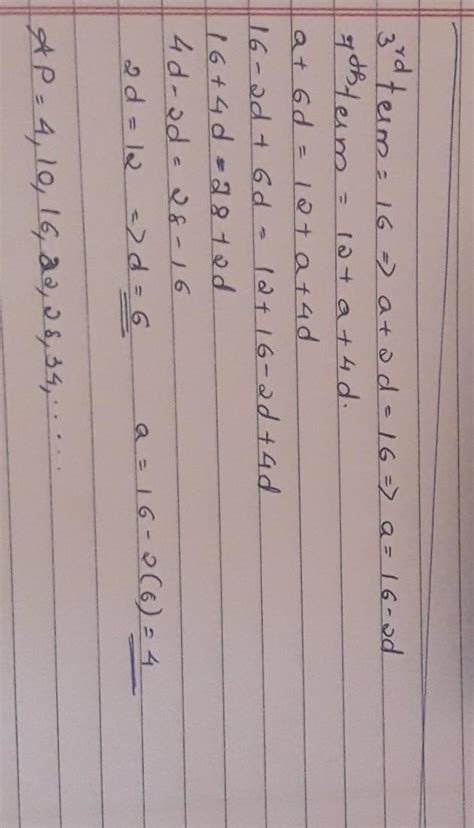 3rd term = 16 => a + 2d = 16 => a = 16 - 2d
7th term = 12 + a + 4d.
a + 6d = 12 + a + 4d
16 - 2d + 6d = 12 + 16 - 2d + 4d
16 + 4d = 28 + 2d
4d - 2d = 28 - 16
2d = 12 => d = 6 a = 16 - 2(6) = 4
AP = 4, 10, 16, 22, 28, 34, ......